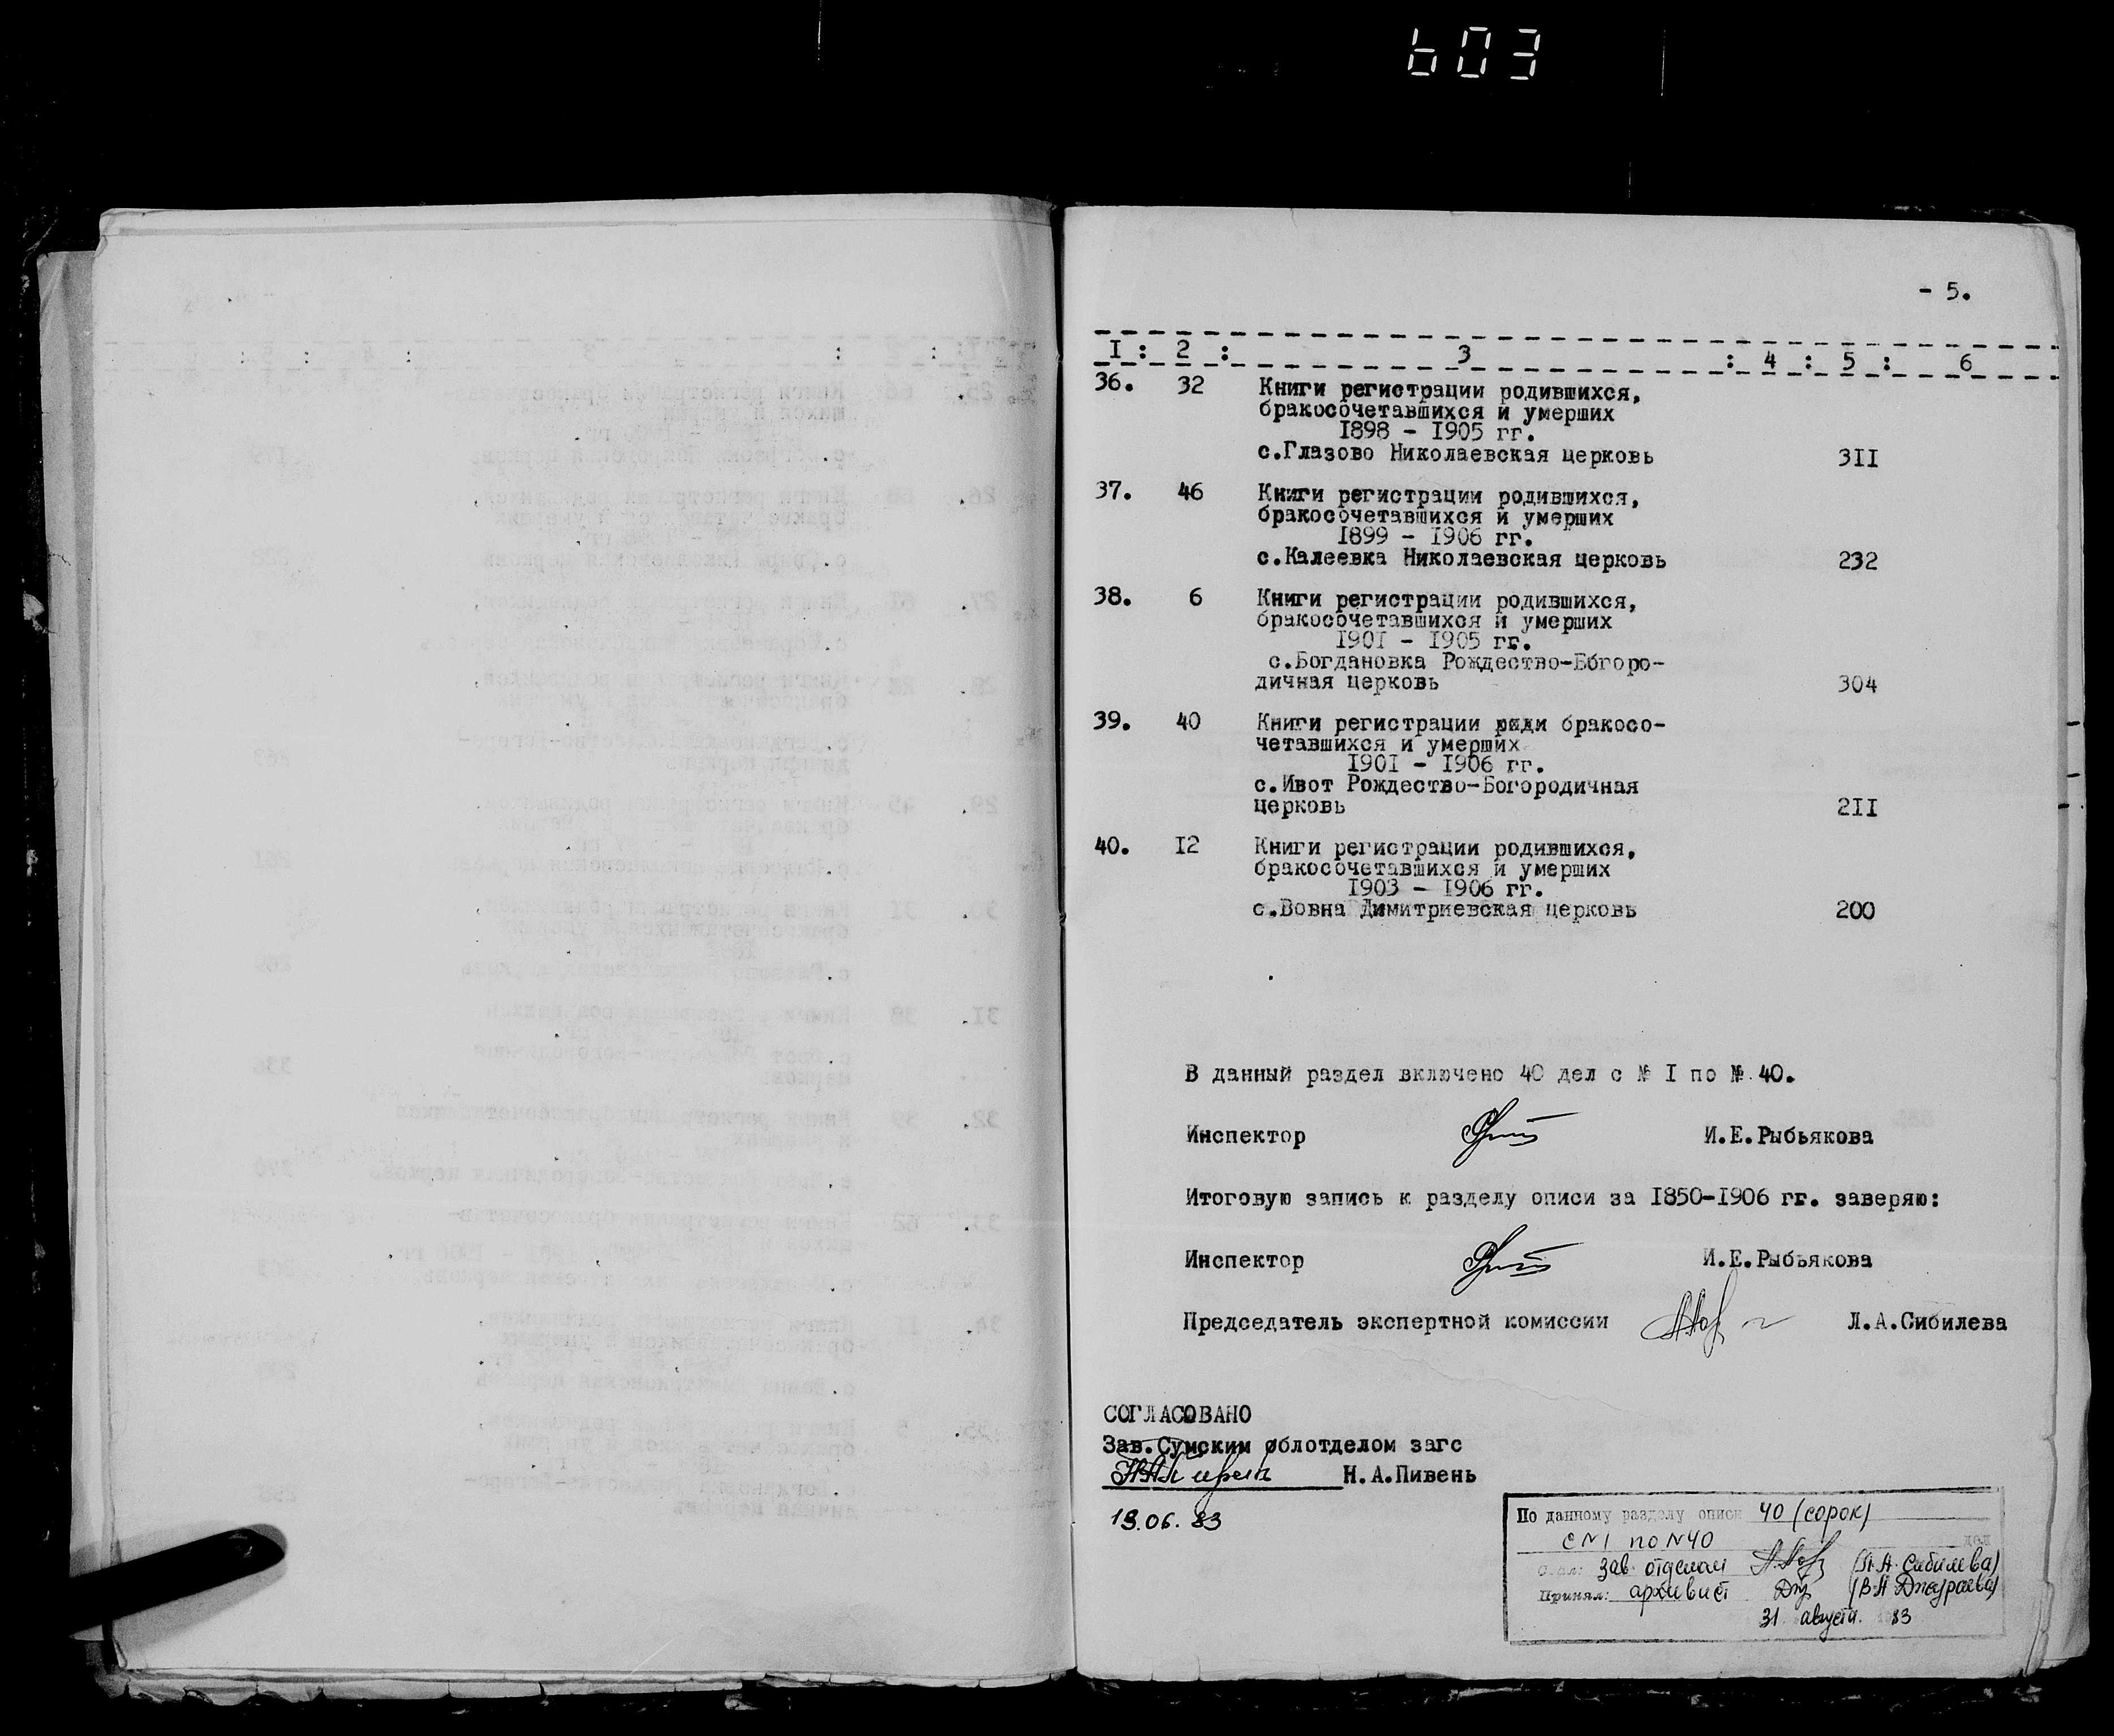 603
- 5.
I : 2 : 3 : 4 : 5 : 6
36. 32 Книги регистрации родившихся,
бракосочетавшихся и умерших
I898 - I905 гг.
с.Глазово Николаевская церковь 3II
37. 46 Книги регистрации родившихся,
бракосочетавшихся и умерших
I899 - I906 гг.
с.Калеевка Николаевская церковь 232
38. 6 Книги регистрации родившихся,
бракосочетавшихся и умерших
I90I - I905 гг.
с.Богдановка Рождество-Ббгоро-
дичная церковь 304
39. 40 Книги регистрации бракосо-
четавшихся и умерших
I90I - I906 гг.
с.Ивот Рождество-Богородичная
церковь 2II
40. I2 Книги регистрации родившихся,
бракосочетавшихся и умерших
I903 - I906 гг.
с.Вовна Димитриевская церковь 200
В данный раздел включено 40 дел с № I по № 40.
Инспектор И.Е.Рыбьякова
Итоговую запись к разделу описи за I850-I906 гг. заверяю:
Инспектор И.Е.Рыбьякова
Председатель экспертной комиссии Л.А.Сибилева
СОГЛАСОВАНО
Зав.Сумским облотделом загс
Н.А.Пивень
13.06.83
По данному разделу описи 40 (сорок)
с N1 по N40 дел
Сдал: Зав. отделом (Л.А. Сибилева)
Принял: архивист
31 август 83